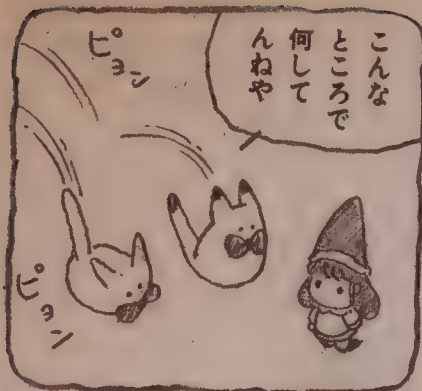 こんな
ところで
何して
んねや
ピョン
ピョン